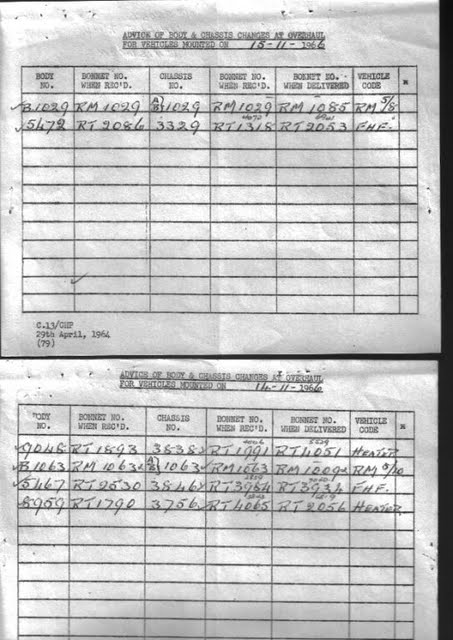 ADVICE OF BODY & CHASSIS CHANGES AT OVERHAUL
FOR VEHICLES MOUNTED ON 15-11-1966
BODY NO. BONNET NO. WHEN REC'D. CHASSIS NO. BONNET NO. WHEN REC'D. BONNET NO. WHEN DELIVERED VEHICLE CODE
B1029 RM 1029 A/B 1029 RM 1029 RM 1085 RM 5/8
5472 RT 2086 3329 RT 1318 RT 2053 FHF.
C.13/CHP
29th April, 1964
(79)
ADVICE OF BODY & CHASSIS CHANGES AT OVERHAUL
FOR VEHICLES MOUNTED ON 14-11-1966
BODY NO. BONNET NO. WHEN REC'D. CHASSIS NO. BONNET NO. WHEN REC'D. BONNET NO. WHEN DELIVERED VEHICLE CODE
9048 RT 1893 3838 RT 1991 RT 4051 HEATER
B1063 RM 1063 A/B 1063 RM 1063 RM 1009 RM 5/10
5467 RT 2530 3846 RT 3964 RT 3934 FHF.
8959 RT 1790 3756 RT 4065 RT 2056 HEATER